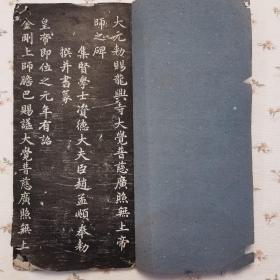 大元敕賜龍興寺大覺普慈廣照無上帝
師之碑
集賢學士資德大夫臣趙孟頫奉勅
撰并書篆
皇帝即位之元年有詔
金剛上師膽巴賜謚大覺普慈廣照無上